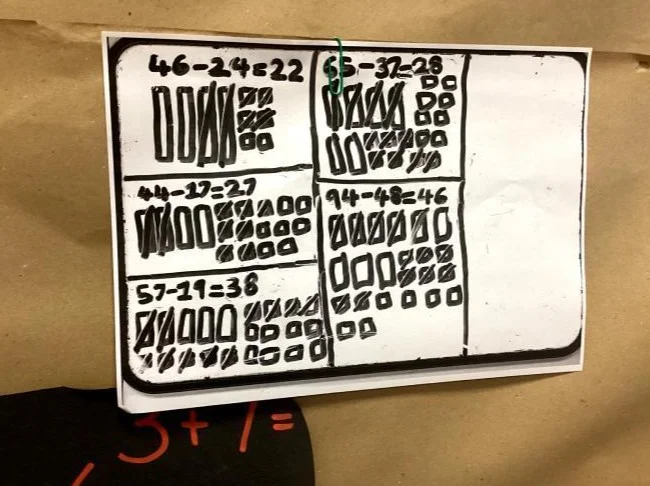 46-24=22
44-17=27
57-19=38
65-37=28
94-48=46
3+1=